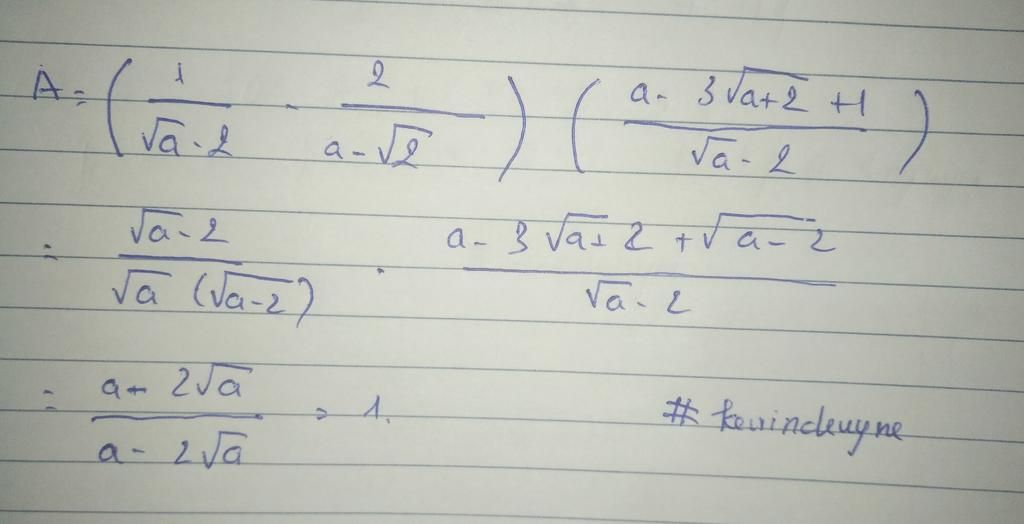 A = ( 1/(√a - 2) - 2/(a - √2) ) ( (a - 3√(a+2) + 1)/(√a - 2) )
= (√a - 2)/(√a (√(a-2))) . (a - 3√(a+) 2 + √(a-2))/(√a - 2)
= (a - 2√a)/(a - 2√a) = 1. # kevindeuyne